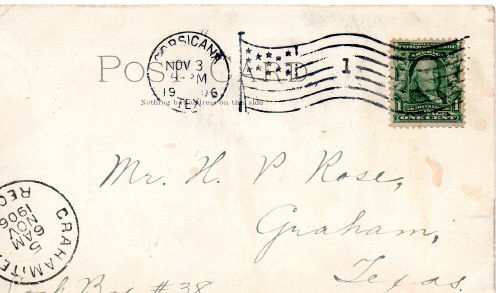 CORSICANA
NOV 3
M
19 06
TEX
1
POST CARD
Nothing but address on this side
1 1
ONE CENT
Mr. H. P Rose,
Graham,
Texas.
GRAHAM, TEX
REC'D
5
NOV
6 AM
1906
Lock Box #38